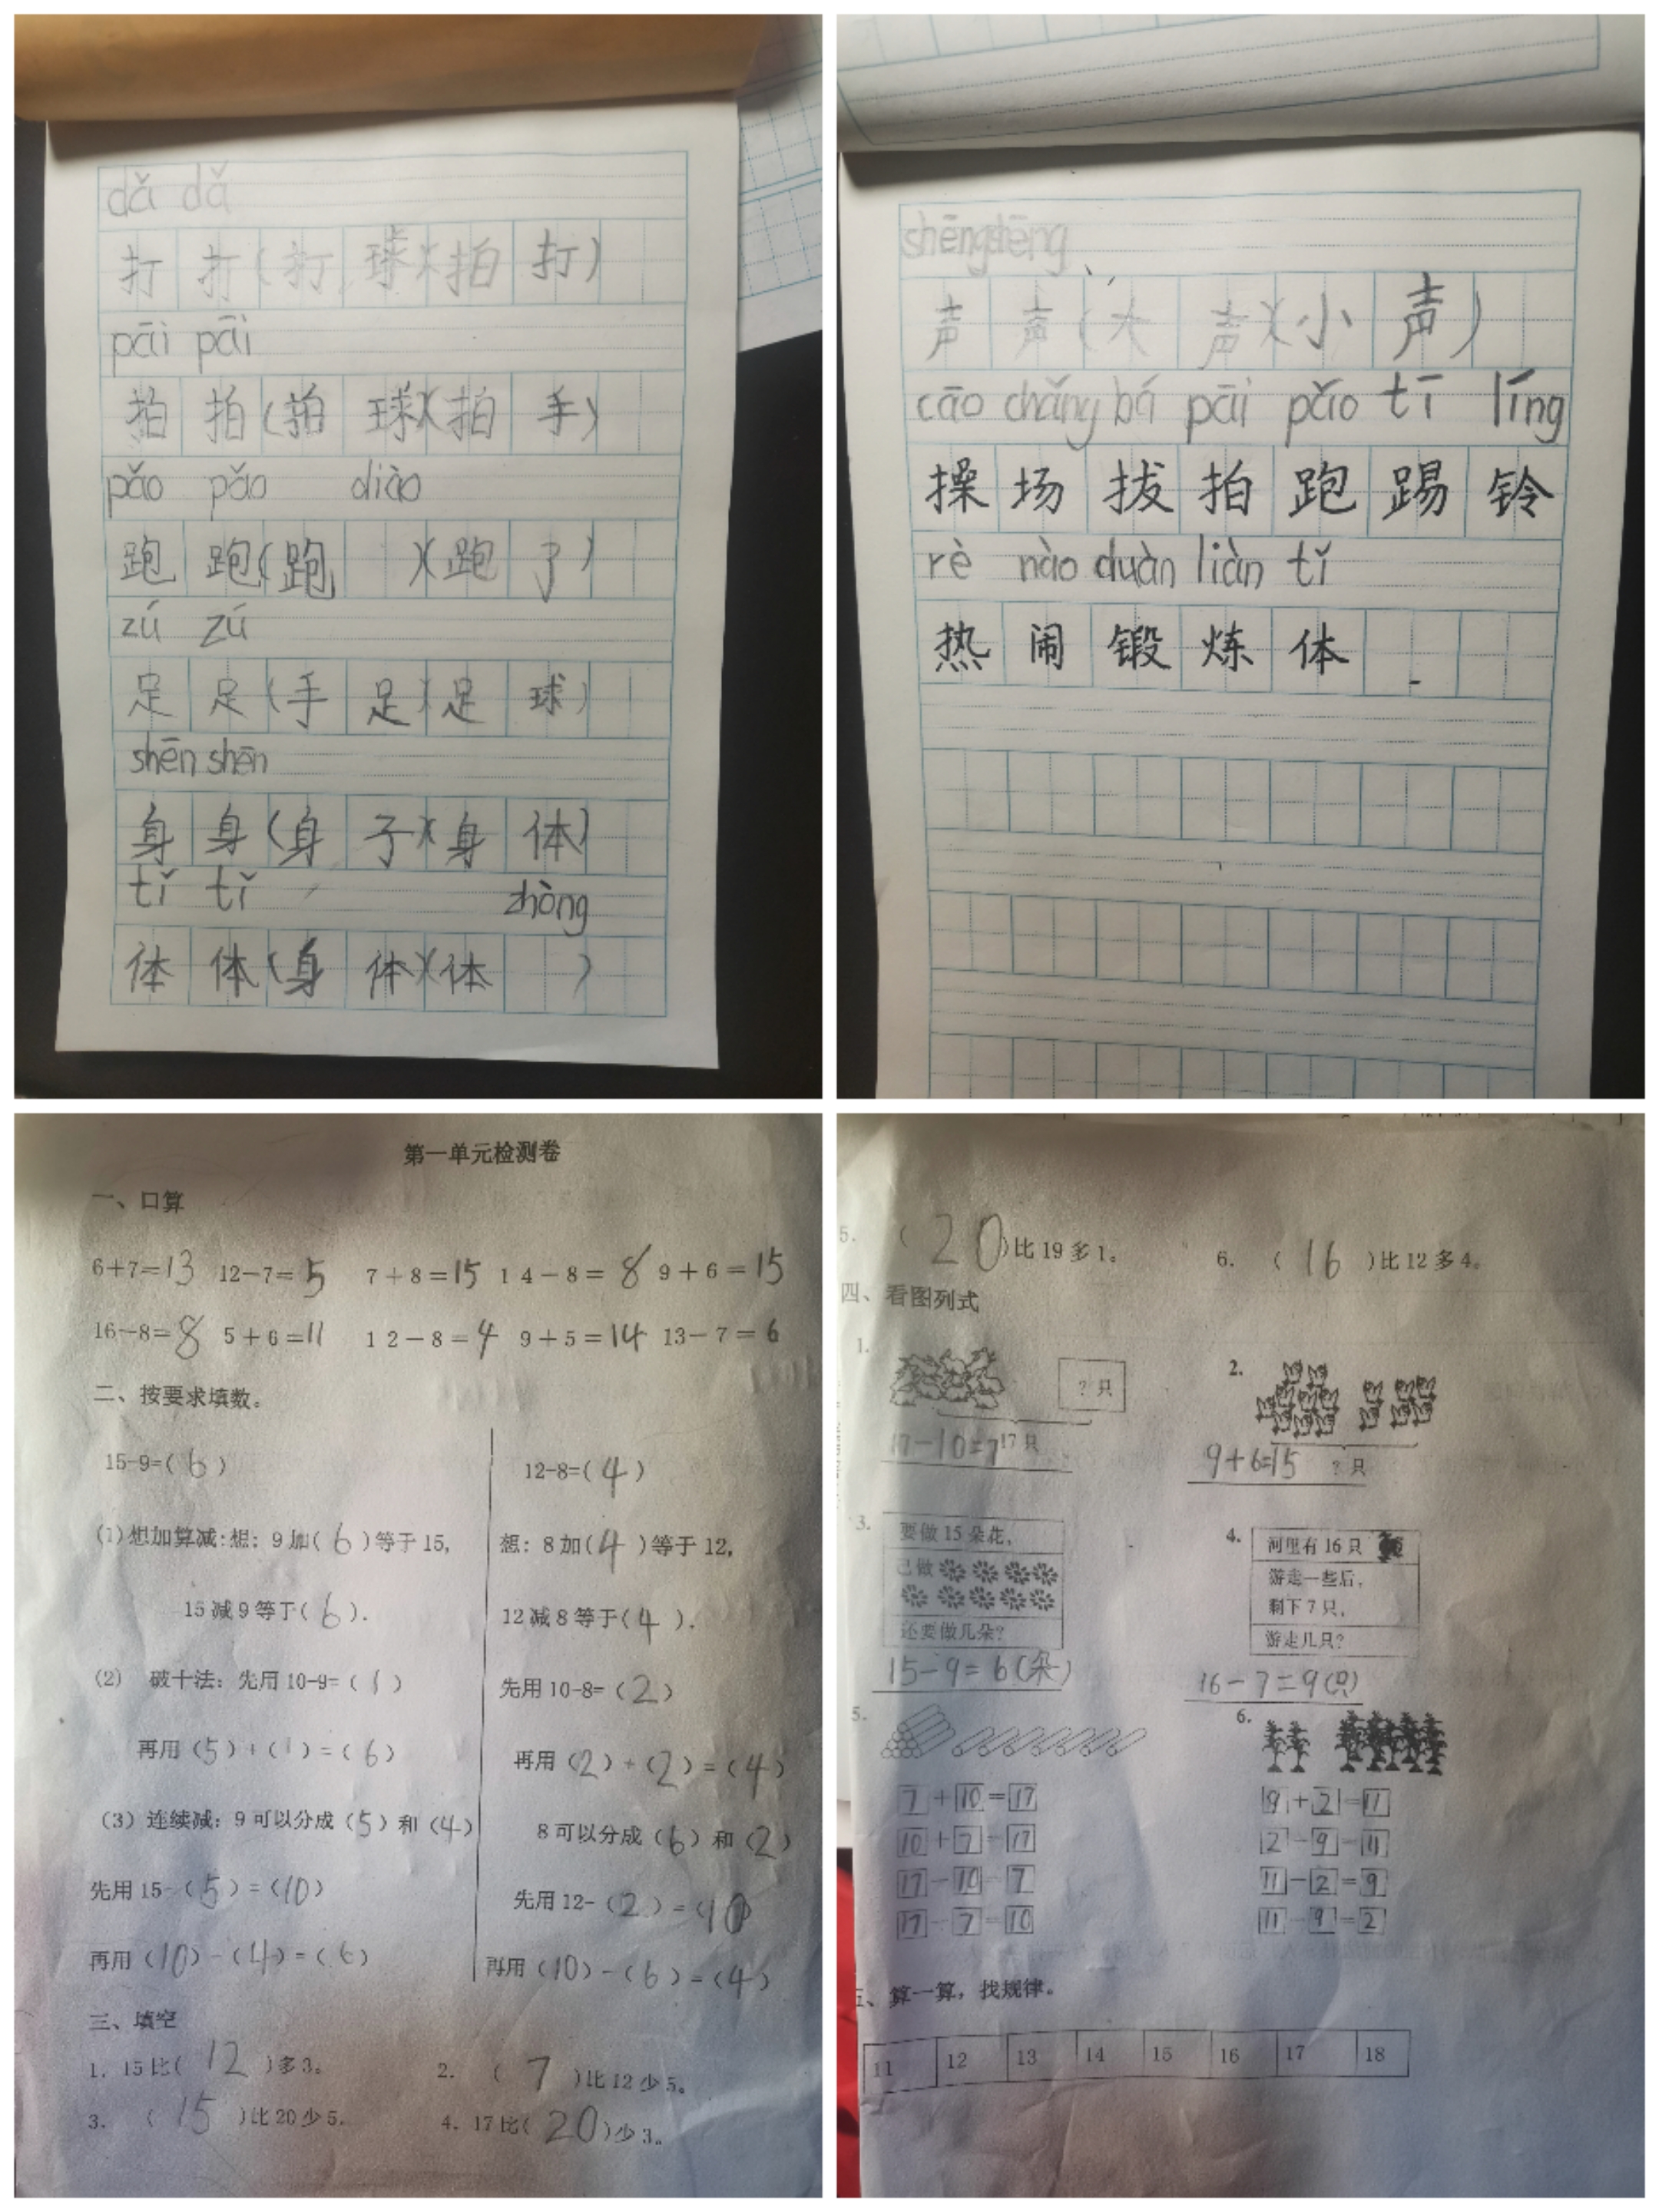 dǎ dǎ
打 打 (打 球)(拍 打)
pāi pāi
拍 拍 (拍 球)(拍 手)
pǎo pǎo diào
跑 跑 (跑 )(跑 了)
zú zú
足 足 (手 足)(足 球)
shēn shēn
身 身 (身 子)(身 体)
tǐ tǐ zhòng
体 体 (身 体)(体 )
shēng shēng
声 声 (大 声)(小 声)
cāo chǎng bá pāi pǎo tī líng
操 场 拔 拍 跑 踢 铃
rè nào duàn liàn tǐ
热 闹 锻 炼 体
第一单元检测卷
一、口算
6+7=13 12-7=5 7+8=15 14-8=8 9+6=15
16-8=8 5+6=11 12-8=4 9+5=14 13-7=6
二、按要求填数。
15-9=(6) 12-8=(4)
(1)想加算减:想: 9加(6)等于15, 想: 8加(4)等于12,
15减9等于(6). 12减8等于(4).
(2) 破十法: 先用10-9=(1) 先用10-8=(2)
再用(5)+(1)=(6) 再用(2)+(2)=(4)
(3)连续减: 9可以分成(5)和(4) 8可以分成(6)和(2)
先用15-(5)=(10) 先用12-(2)=(10)
再用(10)-(4)=(6) 再用(10)-(6)=(4)
三、填空
1. 15比(12)多3。 2. (7)比12少5。
3. (15)比20少5. 4. 17比(20)少3。
5. (20)比19多1。 6. (16)比12多4。
四、看图列式
1. ?只 2.
17-10=7 17只 9+6=15 ?只
3. 要做15朵花, 4. 河里有16只
已做 游走一些后,
剩下7只,
还要做几朵? 游走几只?
15-9=6(朵) 16-7=9(只)
5. 6.
7+10=17 9+2=11
10+7=17 2-9=11
17-10=7 11-2=9
17-7=10 11-9=2
五、算一算, 找规律。
11 12 13 14 15 16 17 18